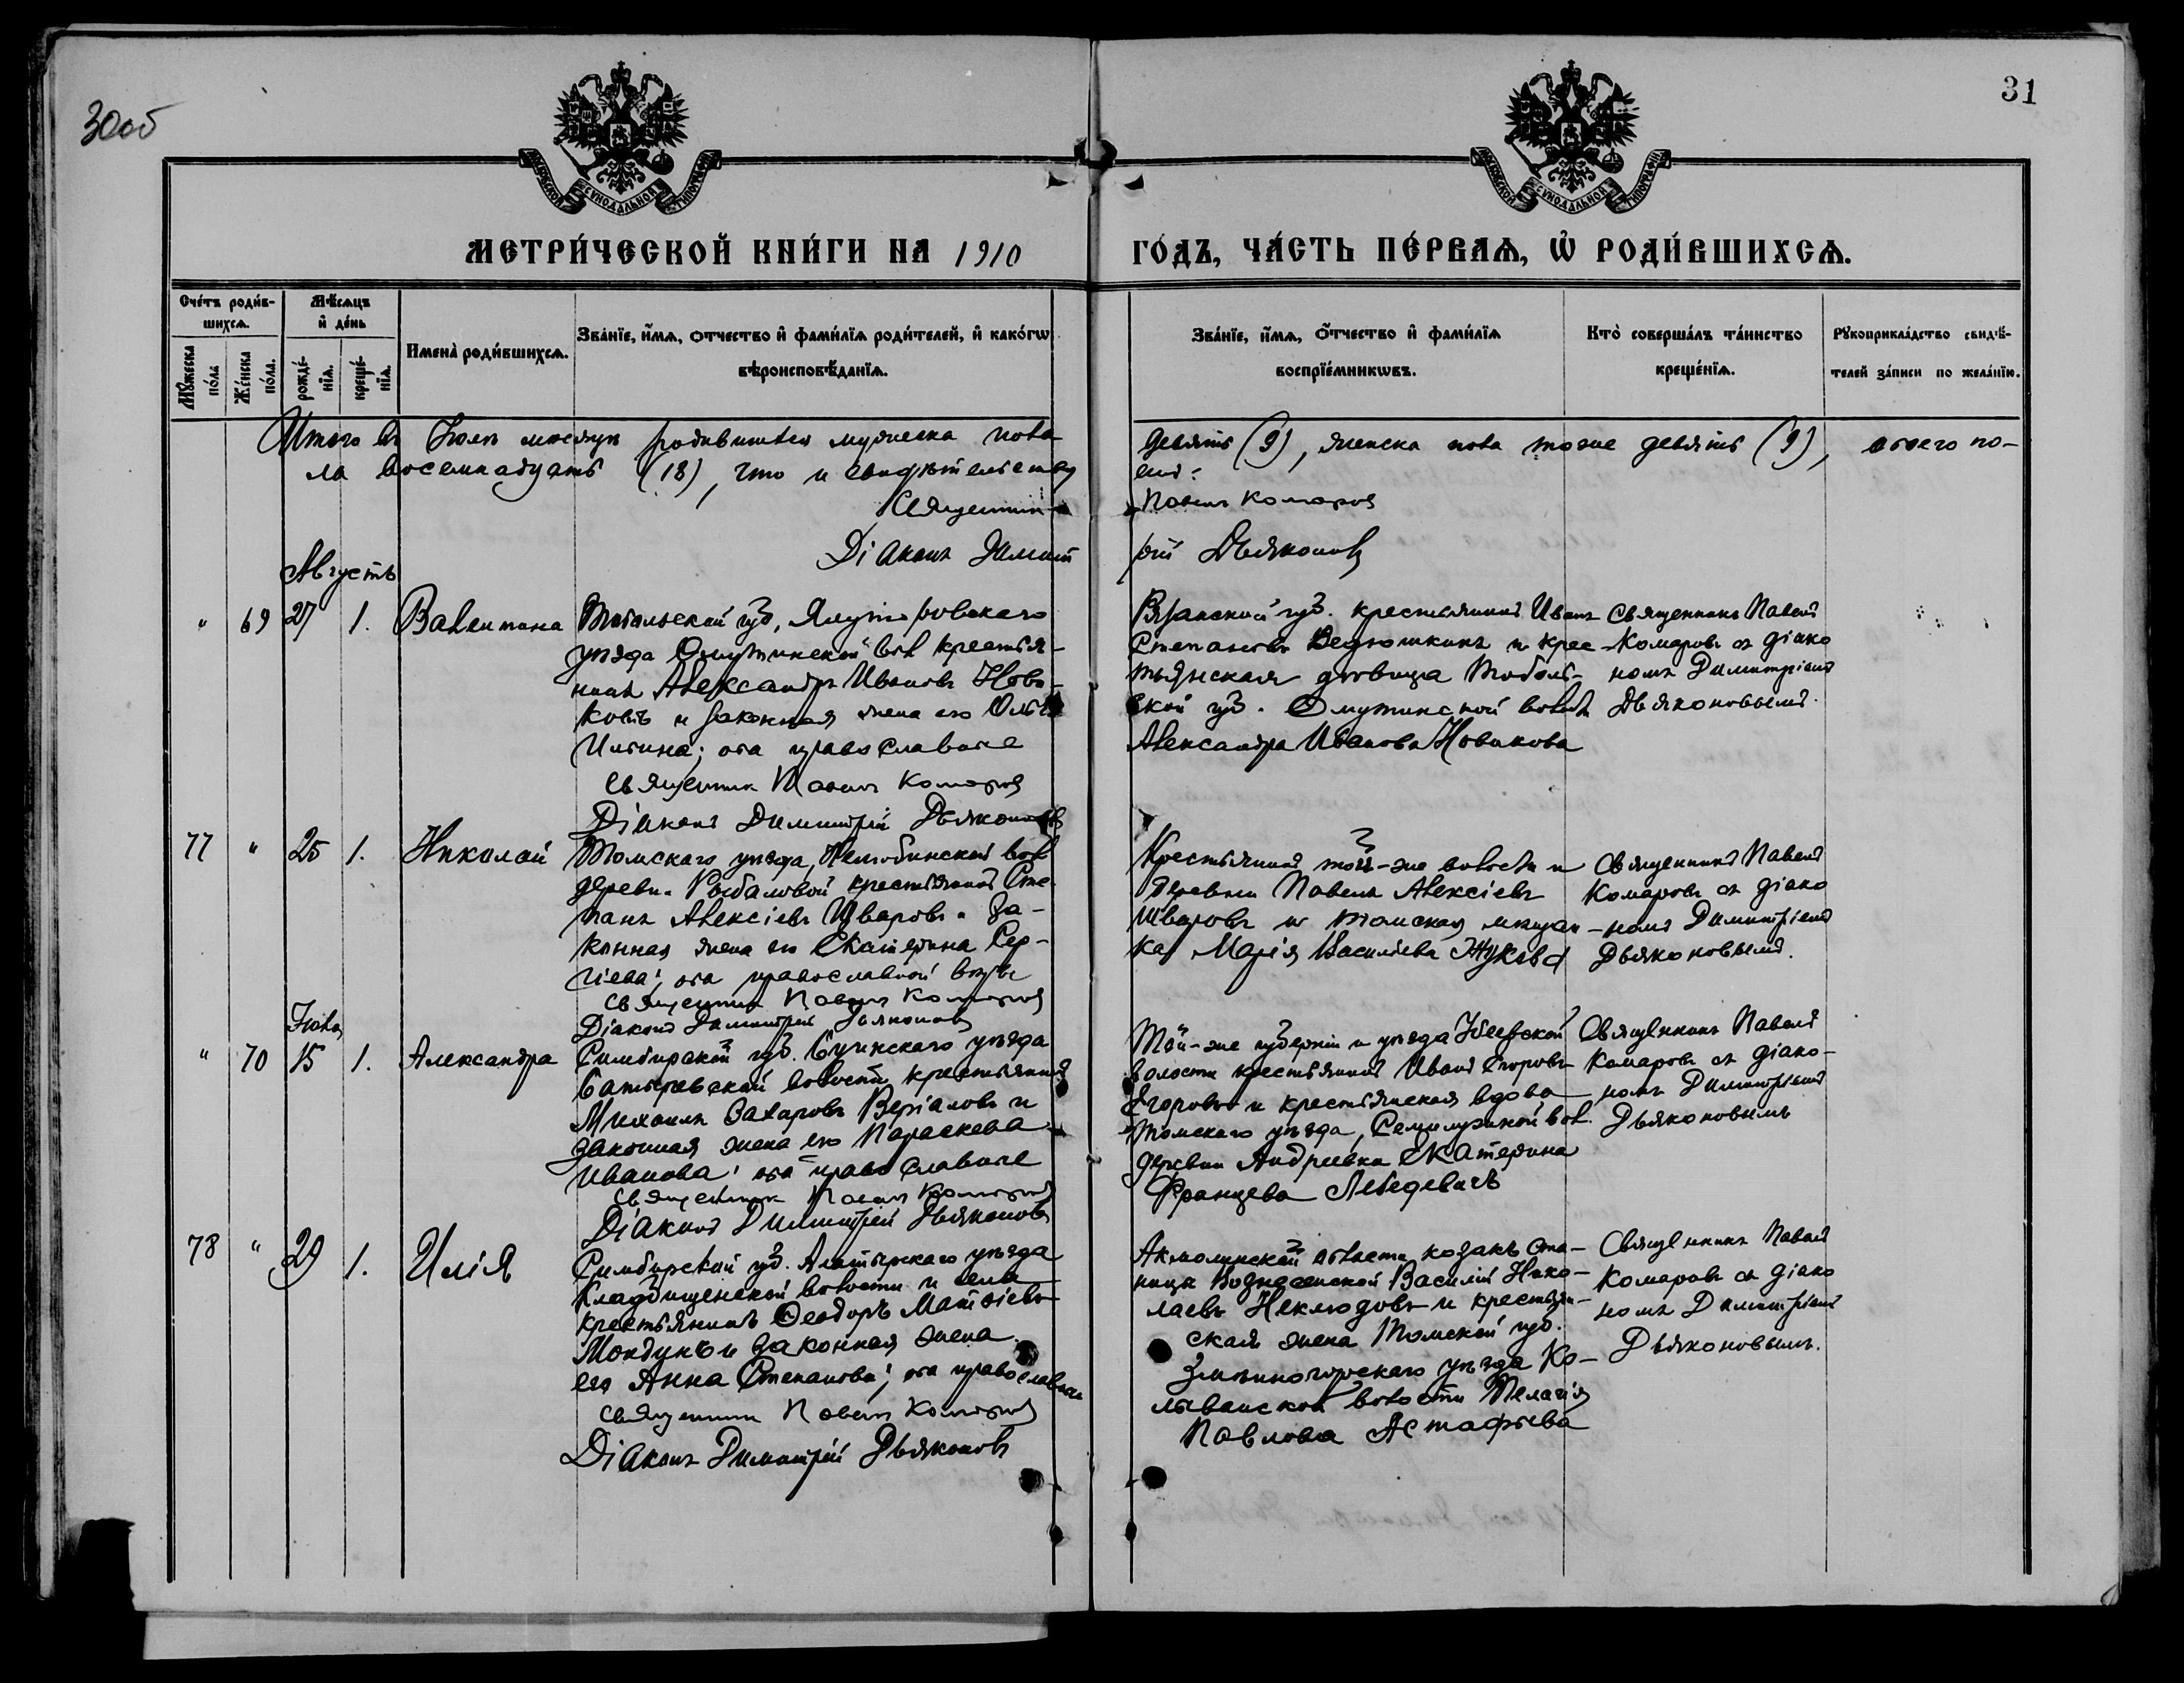 30об
31
МОСКОВСКОЙ СУНОДАЛЬНОЙ ТИПОГРАФІИ
МОСКОВСКОЙ СУНОДАЛЬНОЙ ТИПОГРАФІИ
МЕТРИ́ЧЕСКОЙ КНИ́ГИ НА 1910 ГО́ДЪ, ЧА́СТЬ ПЕ́РВАѦ, Ѡ҆ РОДИ́ВШИХСѦ.
Сче́тъ роди́в-
шихсѧ.
Мꙋ́жеска по́ла
Же́нска по́ла.
Мѣ́сѧцъ
и҆ де́нь
рожде́-
нїѧ.
креще́-
нїѧ.
Имена̀ роди́вшихсѧ.
Зва́нїе, и҆́мѧ, о҆́тчество и҆ фами́лїѧ роди́телей, и҆ како́гѡ
вѣроисповѣ́данїѧ.
Зва́нїе, и҆́мѧ, о҆́тчество и҆ фами́лїѧ
воспрїе́мникѡвъ.
Кто̀ соверша́лъ та́инство
креще́нїѧ.
Рꙋкоприкла́дство свидѣ́-
телей за́писи по жела́нїю.
Итого въ Іюлѣ мѣсяцѣ родившихся мужеска пола девять (9), женска пола тоже девять (9), обоего по-
ла восемнадцать (18), что и свидѣтельству
емъ:
Священникъ Павелъ Комаровъ
Діаконъ Димитрій Дьяконовъ
Августъ
" 69 27 1. Валентина
Тобольской губ., Ялуторовскаго
уѣзда Омутинской вол крестья-
нинъ Александръ Ивановъ Нови-
ковъ и законная жена его Ольга
оба православные
Священникъ Павелъ Комаровъ
Діаконъ Димитрій Дьяконовъ
Рязанской губ. крестьянинъ Иванъ
Степановъ Ведюшкинъ и крес-
тьянская дѣвица Тоболь-
ской губ. Омутинской волости
Александра Иванова Новикова
Священникъ Павелъ
Комаровъ съ діако
номъ Димитріемъ
Дьяконовымъ.
77 " 25 1. Николай
Томскаго уѣзда, Нелюбинской вол
деревни Рыбаловой крестьянинъ Сте
панъ Алексіевъ Шваровъ и за-
конная жена его Екатерина Сер-
гіева; оба православной вѣры
Священникъ Павелъ Комаровъ
Діаконъ Димитрій Дьяконовъ
Крестьянинъ той-же волости и
деревни Павелъ Алексіевъ
Шваровъ и томская мѣщан-
ка Марія Васильева Жукова
Священникъ Павелъ
Комаровъ съ діако
номъ Димитріемъ
Дьяконовымъ.
Іюля
" 70 15 1. Александра
Симбирской губ. Буинскаго уѣзда
Батыревской волости крестьянинъ
Михаилъ Захаровъ и
законная жена его Параскева
Иванова; оба православные
Священникъ Павелъ Комаровъ
Діаконъ Димитрій Дьяконовъ
Той-же губерніи и уѣзда
волости крестьянинъ Иванъ Егоровъ
Егоровъ и крестьянская вдова
Томскаго уѣзда, Семилужной вол.
деревни Андреевки Екатерина
Францева Лебедевичъ
Священникъ Павелъ
Комаровъ съ діако-
номъ Димитріемъ
Дьяконовымъ
78 " 29 1. Илія
Симбирской губ. Алатырскаго уѣзда
Кладбищенской волости и села
крестьянинъ Ѳеодоръ Матѳіевъ
и законная жена
его Анна Степанова; оба православные
Священникъ Павелъ Комаровъ
Діаконъ Димитрій Дьяконовъ
Акмолинской области козакъ ста-
ницы Вознесенской Василій Нико-
лаевъ Неклюдовъ и крестьян-
ская жена Томской губ.
Змѣиногорскаго уѣзда Ко-
лыванской волости Пелагія
Павлова Астафьева
Священникъ Павелъ
Комаровъ съ діако
номъ Димитріемъ
Дьяконовымъ.